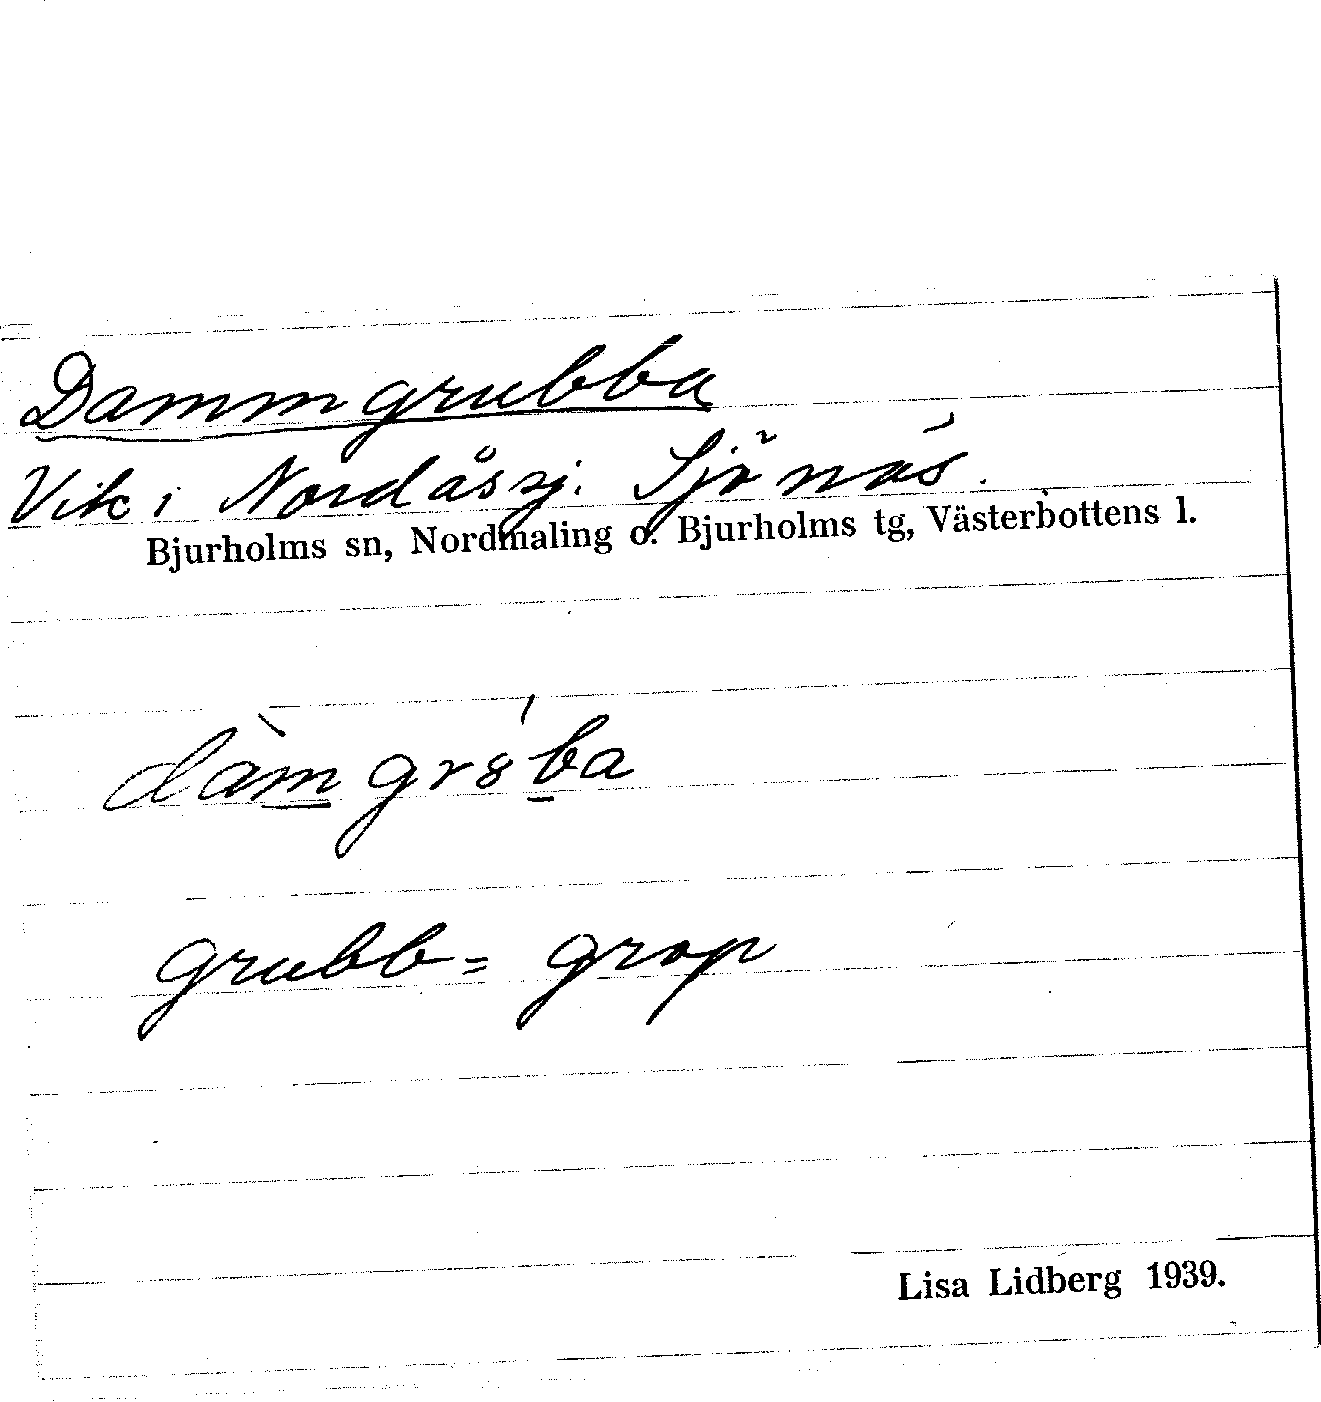 Dammgrubba
Vik i Nordåssj. Sjönäs.
Bjurholms sn, Nordmaling o. Bjurholms tg, Västerbottens l.
dàm̲gr8́b̲a
grubb = grop
Lisa Lidberg 1939.